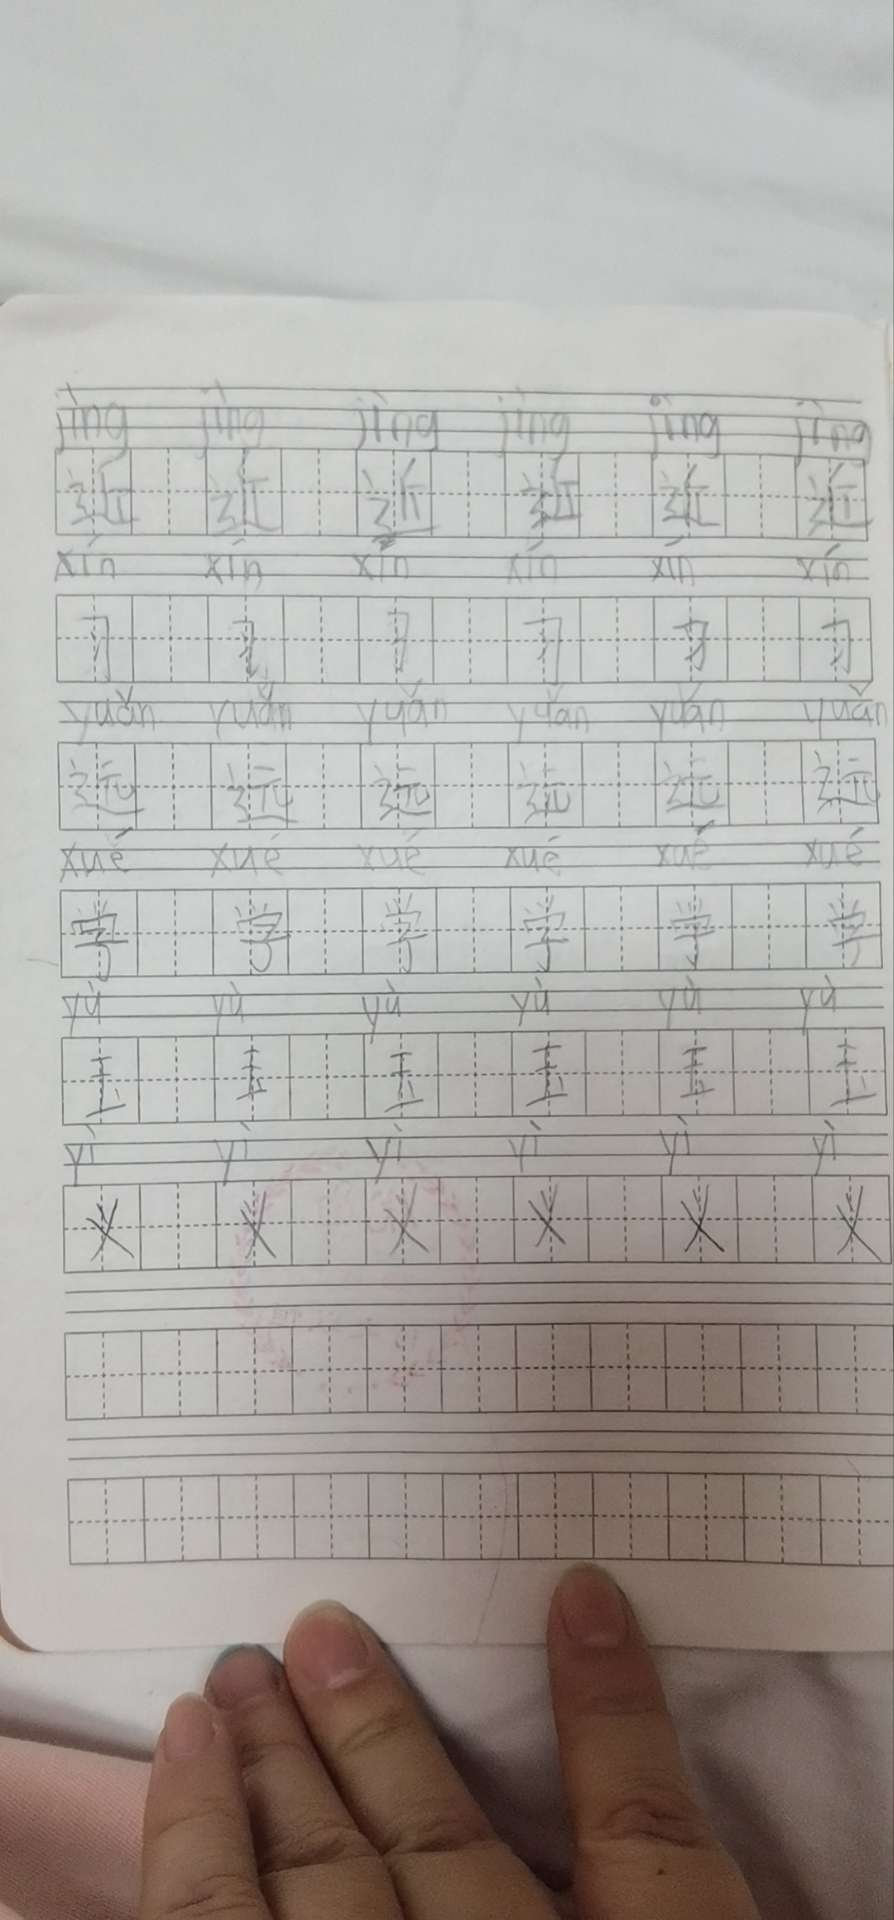 jìng jìng jìng jìng jìng jìng
近 近 近 近 近 近
xín xín xín xín xín xín
习 习 习 习 习 习
yuǎn yuǎn yuǎn yuǎn yuǎn yuǎn
远 远 远 远 远 远
xué xué xué xué xué xué
学 学 学 学 学 学
yù yù yù yù yù yù
玉 玉 玉 玉 玉 玉
yì yì yì yì yì yì
义 义 义 义 义 义